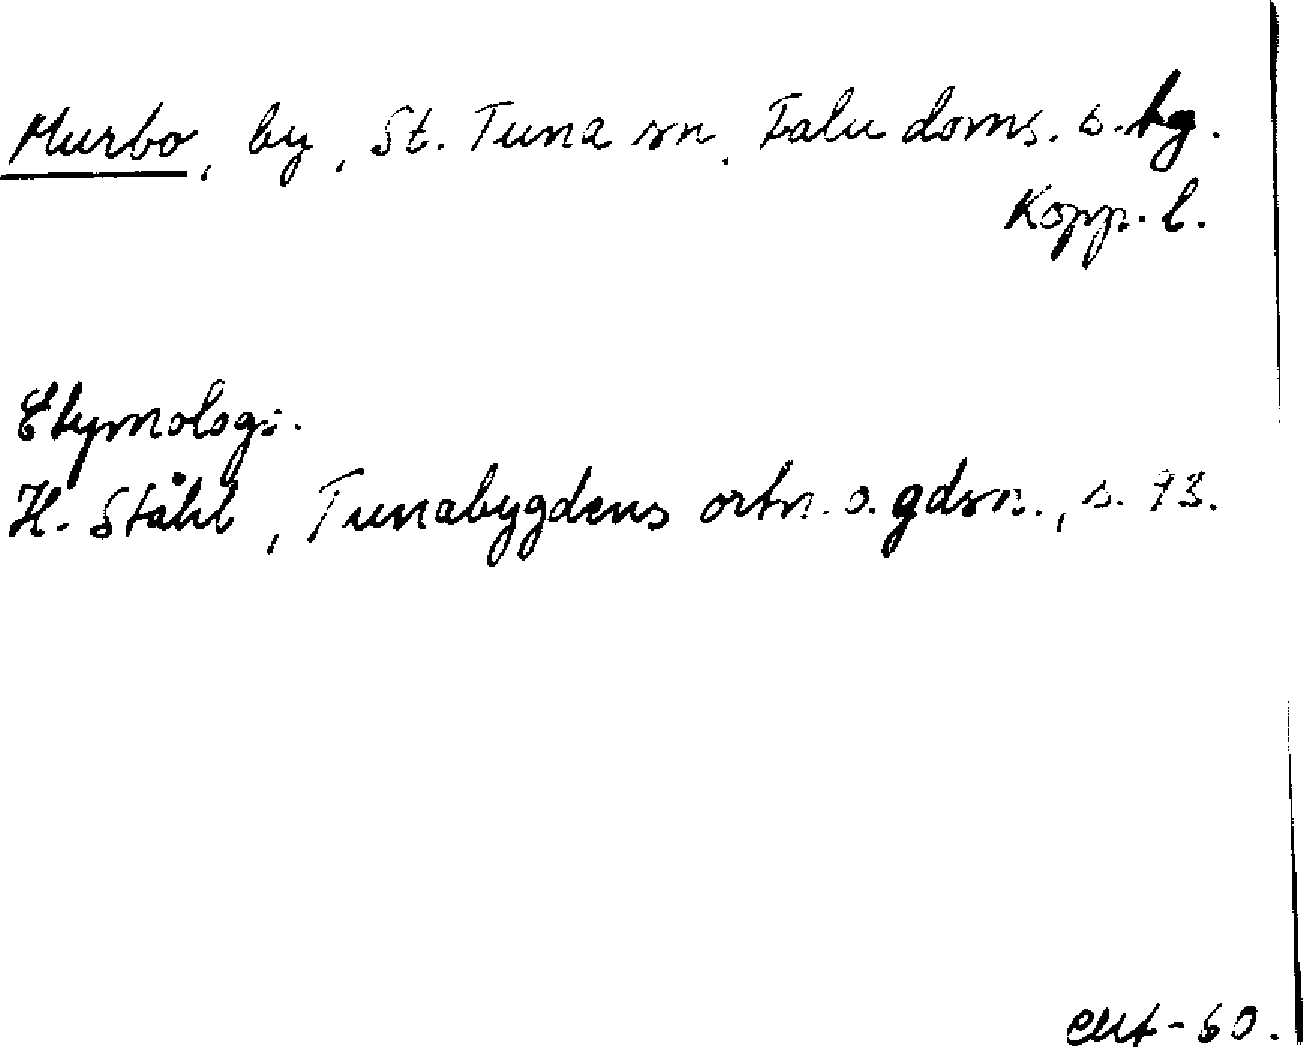 Murbo, by, St. Tuna sn, Falu doms. s. tg.
Kopp. l.
Etymologi.
H. Ståhl, Tunabygdens ortn. o. gdsn., s. 93.
-60.